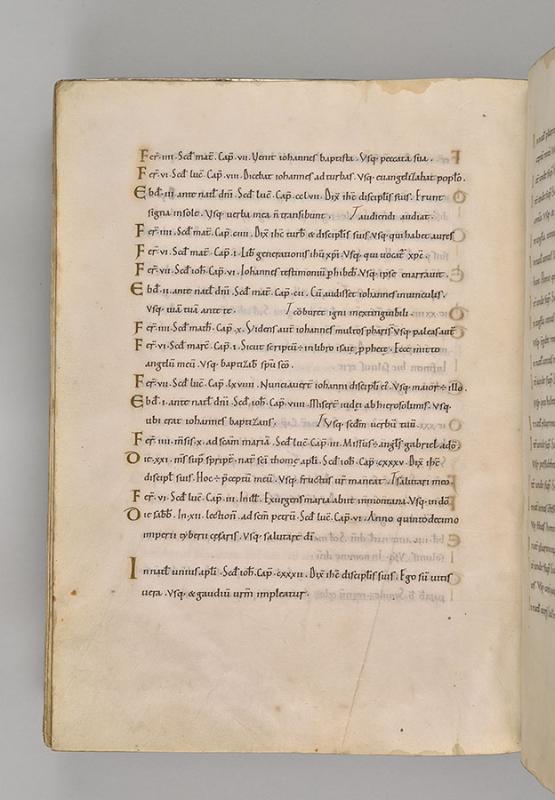 Fer̅ · IIII · Scd̅ mat̅ · Cap̅ · VII · Venit iohannes baptista · Vsq; peccata sua ·
Fer̅ · VI · Scd̅ luc̅ · Cap̅ · VIII · Dicebat iohannes ad turbas · Vsq; euangelizabat poplo̅ ·
Ebd̅ · III · ante natl̅ dn̅i · Scd̅ luc̅ · Cap̅ · cclvII · Dix̅ ihc̅ discipl̅is suis · Erunt
signa in sole · Vsq; uerba mea n̅ transibunt · audiendi audiat ·
Fer̅ · IIII · Scd̅ mat̅ · Cap̅ · cIIII · Dix̅ ihc̅ turb̅ & discipl̅is suis · Vsq; qui habet aures
Fer̅ · VI · Scd̅ mat̅ · Cap̅ · I · Lib̅ generationis ihu̅ xp̅i · Vsq; qui uocat̅ xpc̅ ·
Fer̅ · VII · Scd̅ ioh̅ · Cap̅ · VI · Iohannes testimoniu̅ phibet̅ · Vsq; ipse enarrauit ·
Ebd̅ · II · ante natl̅ dn̅i · Scd̅ mat̅ · Cap̅ · cII · Cu̅ audisset iohannes in uinculis ·
Vsq; uia̅ tua̅ ante te · co̅buret igni inextinguibili ·
Fer̅ · IIII · Scd̅ math̅ · Cap̅ · X · Videns aut̅ iohannes multos pharis̅ · Vsq; paleas aut̅
Fer̅ · VI · Scd̅ marc̅ · Cap̅ · I · Sicut scriptu̅ ÷ in libro isaie pphete̅ · Ecce mitto
angelu̅ meu̅ · Vsq; baptizab̅ spu̅ sc̅o ·
Fer̅ · VII · Scd̅ luc̅ · Cap̅ · lxVIIII · Nunciauer̅ iohanni discipl̅i ei̅ · Vsq; maior ÷ illo ·
Ebd̅ · I · ante natl̅ dn̅i · Scd̅ ioh̅ · Cap̅ · VIII · Miser̅ iudei ab hierosolimis · Vsq;
ubi erat iohannes baptizans · Vsq; scd̅m uerbu̅ tuu̅ ·
Fer̅ · IIII · m̅sis · X · ad sc̅am maria̅ · Scd̅ luc̅ · Cap̅ · III · Missus ÷ angl̅s gabriel · a do̅ ·
Die · XXI · m̅s sup̅ script̅ · nat̅ sc̅i thome apl̅i · Scd̅ ioh̅ · Cap̅ · cXXXV · Dix̅ ihc̅
discipl̅ suis · Hoc ÷ p̅ceptu̅ meu̅ · Vsq; fructus ur̅ maneat · salutari meo ·
Fer̅ · VI · Scd̅ luc̅ · Cap̅ · III · In ill̅ · Exurgens maria abiit in montana · Vsq; in do̅
Die sabb̅ · In · XII · lection̅ · ad sc̅m petru̅ · Scd̅ luc̅ · Cap̅ · VI · Anno quintodecimo
imperii tyberii cesaris · Vsq; salutare di̅
In natl̅ unius apl̅i · Scd̅ ioh̅ · Cap̅ · cXXXII · Dix̅ ihc̅ discipl̅is suis · Ego su̅ uitis
uera · Vsq; & gaudiu̅ urm̅ impleatur ·